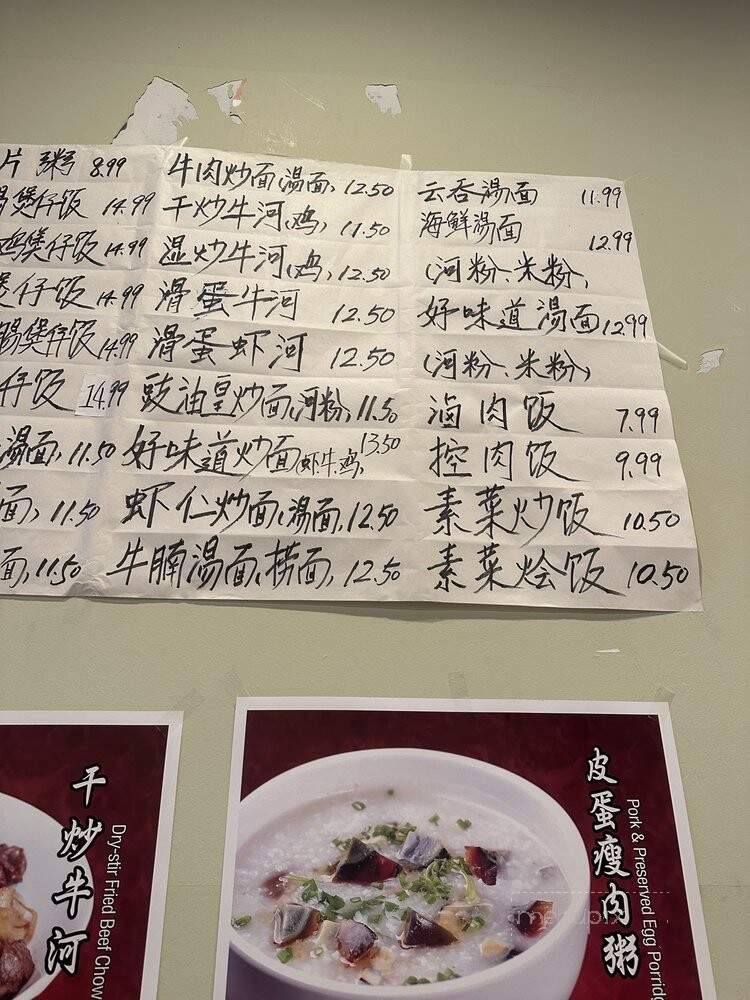 片粥 8.99
煲仔饭 14.99
鸡煲仔饭 14.99
煲仔饭 14.99
肠煲仔饭 14.99
仔饭 14.99
汤面, 11.50
面, 11.50
面, 11.50
牛肉炒面(湯面, 12.50
干炒牛河(鸡) 11.50
湿炒牛河(鸡, 12.50
滑蛋牛河 12.50
滑蛋虾河 12.50
豉油皇炒面(河粉, 11.50
好味道炒面(虾牛鸡, 13.50
虾仁炒面(湯面, 12.50
牛腩湯面(捞面, 12.50
云吞湯面 11.99
海鲜湯面 12.99
(河粉、米粉)
好味道湯面 12.99
(河粉、米粉)
滷肉饭 7.99
控肉饭 9.99
素菜炒饭 10.50
素菜烩饭 10.50
干炒牛河
Dry-stir Fried Beef Chow
皮蛋瘦肉粥
Pork & Preserved Egg Porrid